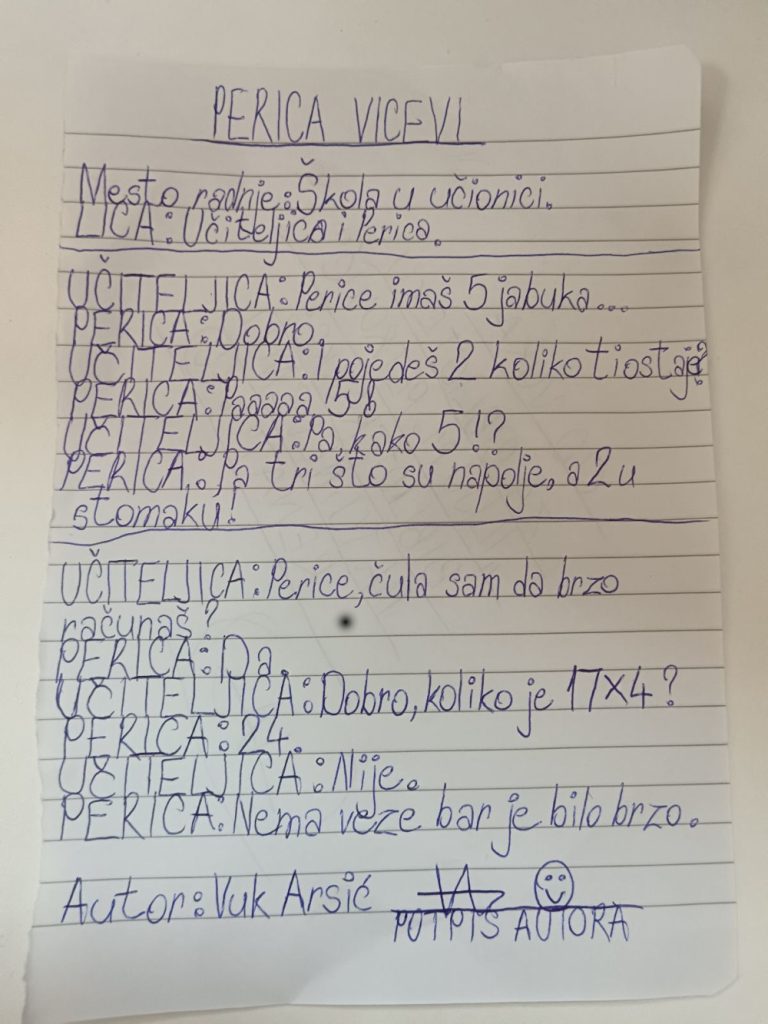 PERICA VICEVI
Mesto radnje: Škola u učionici.
LICA: Učiteljica i Perica.
UČITELJICA: Perice imaš 5 jabuka...
PERICA: Dobro.
UČITELJICA: I pojedeš 2 koliko ti ostaje?
PERICA: Paaaaa 5!
UČITELJICA: Pa, kako 5!?
PERICA: Pa tri što su napolje, a 2 u
stomaku!
UČITELJICA: Perice, čula sam da brzo
računaš?
PERICA: Da.
UČITELJICA: Dobro, koliko je 17x4?
PERICA: 24.
UČITELJICA: Nije.
PERICA: Nema veze bar je bilo brzo.
Autor: Vuk Arsić
POTPIS AUTORA